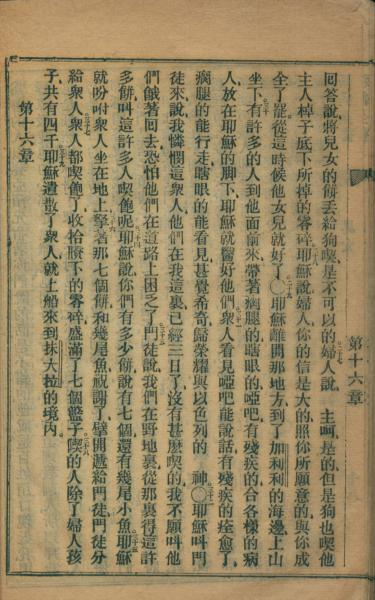 回答說、將兒女的餅丟給狗喫、是不可以的、婦人說、主呵、是的、但是狗也喫他
主人棹子底下所掉的零碎、耶穌說、婦人、你的信是大的、照你所願意的與你成
全了罷、從這時候、他女兒就好了、〇耶穌離開那地方、到了加利利的海邊、上山
坐下、有許多的人到他面前來、帶著瘸腿的、瞎眼的、啞吧、有殘疾的、合各樣的病
人、放在耶穌的脚下、耶穌就醫好他們、衆人看見啞吧能說話、有殘疾的痊愈了、
瘸腿的能行走、瞎眼的能看見、甚覺希奇、歸榮耀與以色列的 神、〇耶穌叫門
徒來說、我憐憫這衆人、他們在我這裏已經三日了、沒有甚麽喫的、我不願叫他
們餓著回去、恐怕他們在道路上困乏了、門徒說、我們在野地裏、從那裏得這許
多餅、叫這許多人喫飽呢、耶穌說、你們有多少餅、說、有七個、還有幾尾小魚、耶穌
就吩咐衆人坐在地上、拏著那七個餅和幾尾魚、祝謝了、擘開、遞給門徒、門徒分
給衆人、衆人都喫飽了、收拾賸下的零碎、盛滿了七個籃子、喫的人除了婦人孩
子、共有四千、耶穌遣散了衆人、就上船來到抹大拉的境內、
第十六章
第十六章